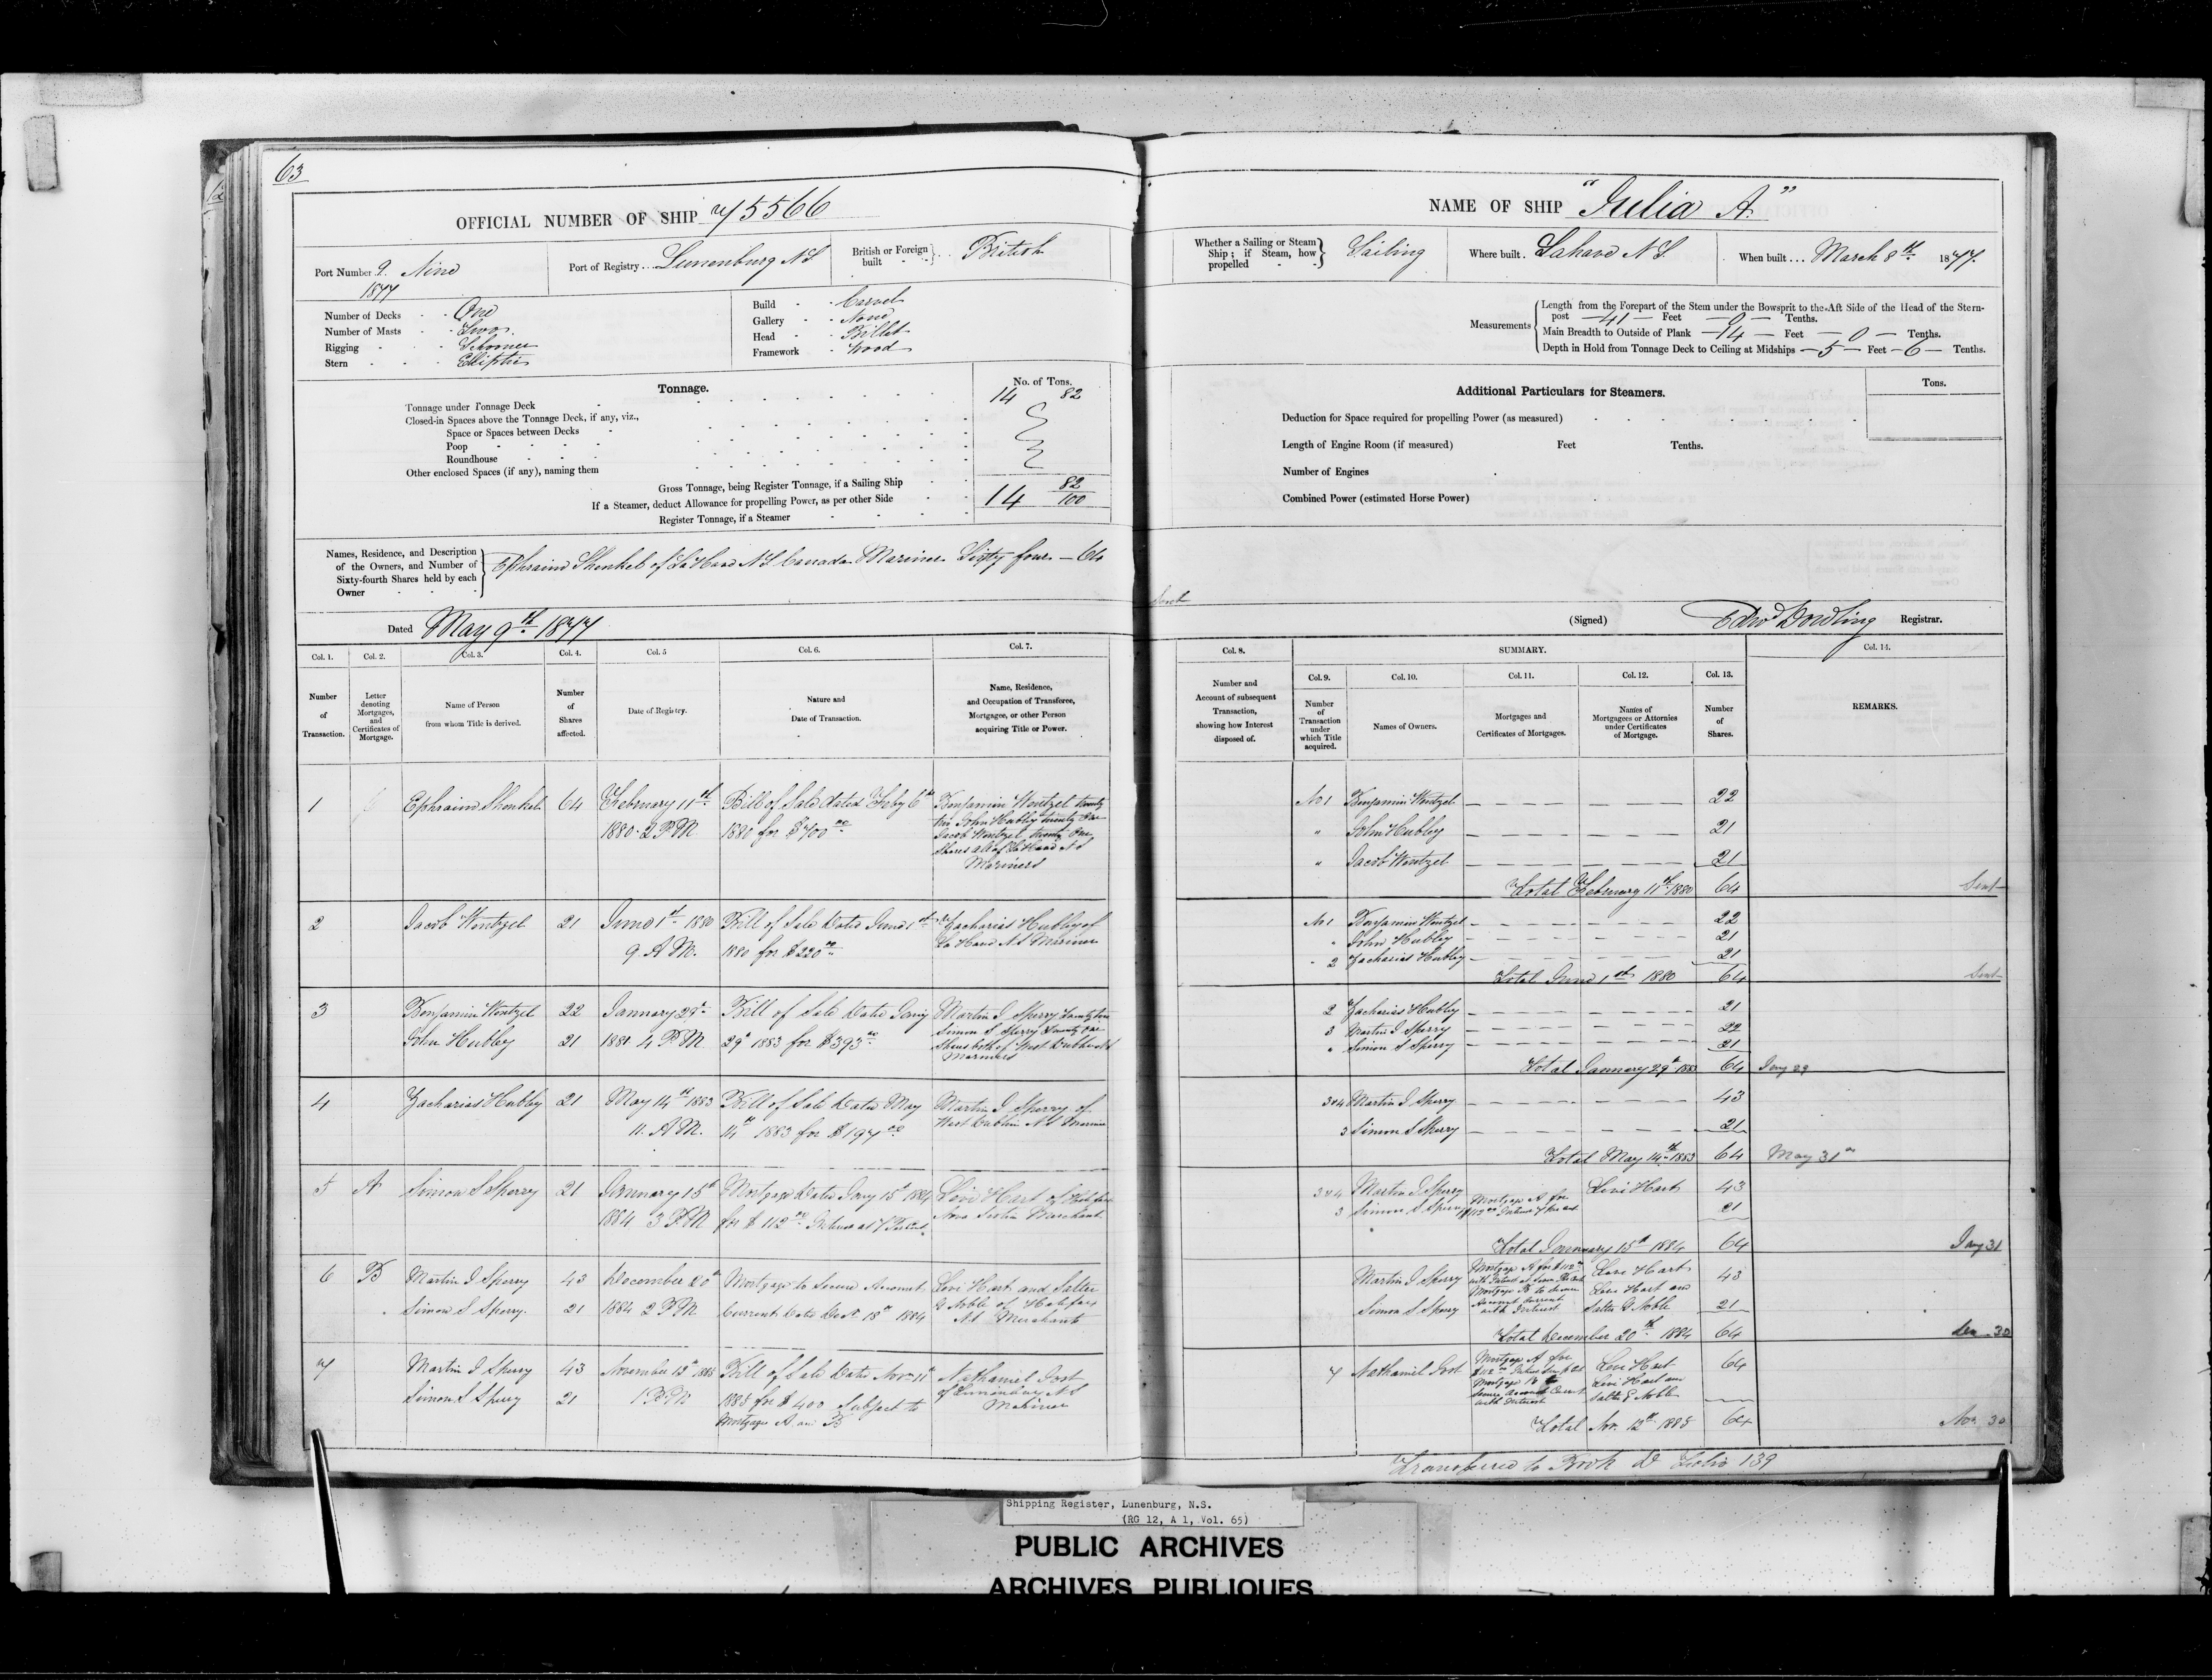 63
OFFICIAL NUMBER OF SHIP 75566
Port Number 9. Nine
1877
Port of Registry . . Lunenburg N S
British or Foreign built } . . British
Number of Decks - - One
Number of Masts - - Two
Rigging - - Schooner
Stern - - - Elliptic
Build - - Carvel
Gallery - - None
Head - - Billet
Framework - Wood
Tonnage.
No. of Tons.
Tonnage under Tonnage Deck 14 82
Closed-in Spaces above the Tonnage Deck, if any, viz.,
Space or Spaces between Decks
Poop
Roundhouse
Other enclosed Spaces (if any), naming them
Gross Tonnage, being Register Tonnage, if a Sailing Ship
If a Steamer, deduct Allowance for propelling Power, as per other Side 14 82/100
Register Tonnage, if a Steamer
Names, Residence, and Description of the Owners, and Number of Sixty-fourth Shares held by each Owner } Ephraim Shenkel of La Have N S Canada Mariner Sixty four - 64
Dated May 9th 1877
Col. 1. Col. 2. Col. 3. Col. 4. Col. 5 Col. 6. Col. 7.
Number of Transaction.
Letter denoting Mortgages, and Certificates of Mortgage.
Name of Person from whom Title is derived.
Number of Shares affected.
Date of Registry.
Nature and Date of Transaction.
Name, Residence, and Occupation of Transferee, Mortgagee, or other Person acquiring Title or Power.
1 Ephraim Shenkel 64 February 11th Bill of Sale dated Feby 6th Benjamin Wentzel twenty
1880 2 P.M 1880 for $700.00 two John Hubley twenty One
Jacob Wentzel twenty One
Shares all of La Have N S
Mariners
2 Jacob Wentzel 21 June 1st 1880 Bill of Sale Dated June 1st Zacharias Hubley of
9 A M. 1880 for $220.00 La Have N S Mariner
3 Benjamin Wentzel 22 January 29th Bill of Sale Dated Jany Martin J Sperry Twenty two
John Hubley 21 1881 4 P.M 29th 1883 for $393.00 Simon S Sperry Twenty One
Shares both of West Dublin N S
Mariners
4 Zacharias Hubley 21 May 14th 1883 Bill of Sale Dated May Martin J Sperry of
11. A M. 14th 1883 for $197.00 West Dublin N S Mariner
5 A Simon S Sperry 21 January 15th Mortgage Dated Jany 15th 1884 Levi Hart of Halifax
1884 3 P.M for $112.00 Interest at 7 Per Cent. Nova Scotia Merchant
6 B Martin J Sperry 43 December 20th Mortgage to Secure Account Levi Hart and Salter
Simon S Sperry. 21 1884 2 P.M Current Date Decr 18th 1884 G Noble of Halifax
N S Merchants
7 Martin J Sperry 43 November 12th 1885 Bill of Sale Dated Nov 11th Nathaniel Jost
Simon S Sperry 21 1 P.M 1885 for $400 Subject to of Lunenburg N S
Mortgages A and B Mariner
NAME OF SHIP "Julia A."
Whether a Sailing or Steam Ship; if Steam, how propelled } Sailing
Where built . Lahave N S.
When built . . . March 8th 1877.
Measurements
Length from the Forepart of the Stem under the Bowsprit to the Aft Side of the Head of the Stern-
post - 41 - Feet - 0 - Tenths.
Main Breadth to Outside of Plank - 14 - Feet - 0 - Tenths.
Depth in Hold from Tonnage Deck to Ceiling at Midships - 5 - Feet - 6 - Tenths.
Additional Particulars for Steamers.
Tons.
Deduction for Space required for propelling Power (as measured)
Length of Engine Room (if measured) Feet Tenths.
Number of Engines
Combined Power (estimated Horse Power)
(Signed) Edwd Dowling Registrar.
Col. 8. SUMMARY. Col. 14.
Col. 9. Col. 10. Col. 11. Col. 12. Col. 13.
Number and Account of subsequent Transaction, showing how Interest disposed of.
Number of Transaction under which Title acquired.
Names of Owners.
Mortgages and Certificates of Mortgages.
Names of Mortgagees or Attornies under Certificates of Mortgage.
Number of Shares.
REMARKS.
No 1 Benjamin Wentzel 22
" John Hubley 21
" Jacob Wentzel 21
Total February 11th 1880 64 Sent
No 1 Benjamin Wentzel 22
" John Hubley 21
" 2 Zacharias Hubley 21
Total June 1st 1880 64 Sent
2 Zacharias Hubley 21
3 Martin J Sperry 22
" Simon S Sperry 21
Total January 29th 1883 64 Jany 29
3&4 Martin J Sperry 43
3 Simon S Sperry 21
Total May 14th 1883 64 May 31st
3&4 Martin J Sperry Mortgage A for Levi Hart 43
3 Simon S Sperry $112.00 Interest 7 Per cent 21
Total January 15th 1884 64 Jany 31
Martin J Sperry Mortgage A for $112 Levi Hart 43
Mortgage B to Secure Levi Hart and
Simon S Sperry Account Current with Interest Salter G Noble 21
Total December 20th 1884 64 Dec 30
7 Nathaniel Jost Mortgage A for Levi Hart 64
Mortgage B to Levi Hart and
Secure Account Current with Interest Salter G Noble
Total Nov. 12th 1885 64 Nov 30
Transferred to Book D Folio 139
Shipping Register, Lunenburg, N.S.
(RG 12, A 1, Vol. 65)
PUBLIC ARCHIVES
ARCHIVES PUBLIQUES